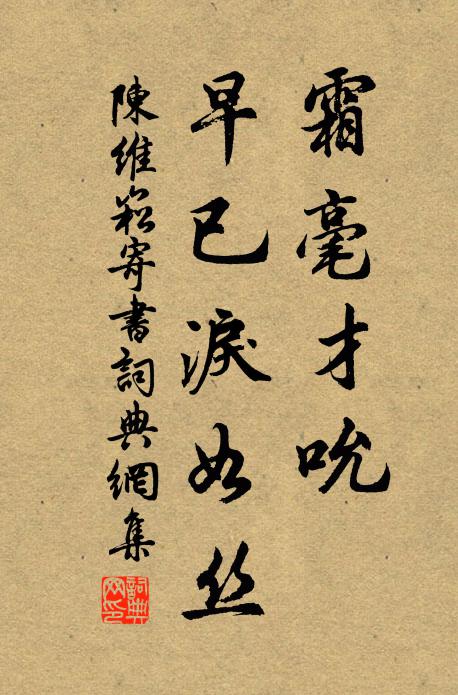 霜毫才吮
早已淚如丝
陳維崧寄書詞典網集
詞典
网印